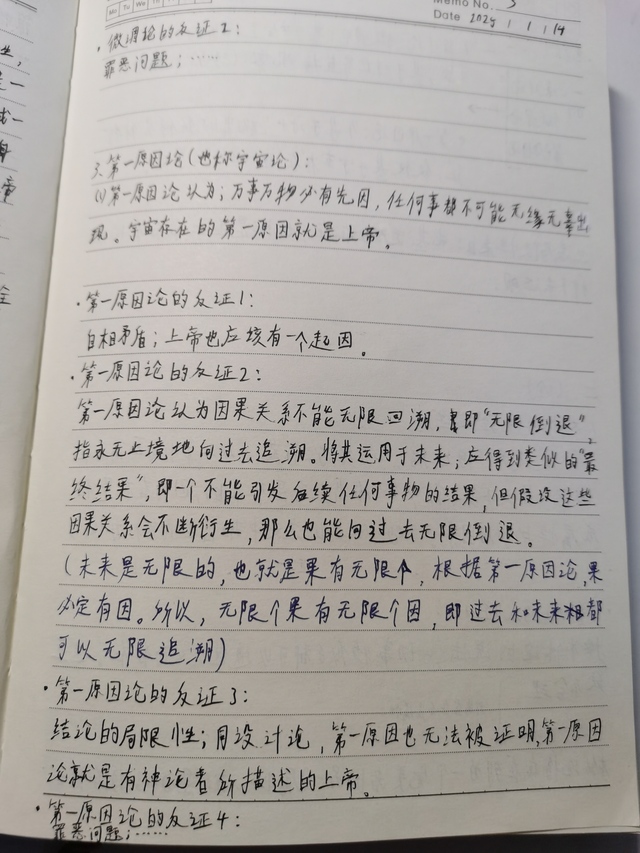 Mo Tu We Th
Memo No. 3
Date 2024 / 1 / 14
· 微调论的反证2：
罪恶问题；……
3、第一原因论（也称宇宙论）：
(1)第一原因论认为；万事万物必有先因，任何事都不可能无缘无辜出
现。宇宙存在的第一原因就是上帝。
·第一原因论的反证1：
自相矛盾；上帝也应该有一个起因。
·第一原因论的反证2：
第一原因论认为因果关系不能无限回溯，即“无限倒退”，
指永无止境地向过去追溯。将其运用于未来；应得到类似的“最
终结果”，即一个不能引发后续任何事物的结果，但假设这些
因果关系会不断衍生，那么也能向过去无限倒退。
（未来是无限的，也就是果有无限个，根据第一原因论，果
必定有因。所以，无限个果有无限个因，即过去和未来都
可以无限追溯）
·第一原因论的反证3：
结论的局限性；同设计论，第一原因也无法被证明，第一原因
论就是有神论者所描述的上帝。
·第一原因论的反证4：
罪恶问题；……